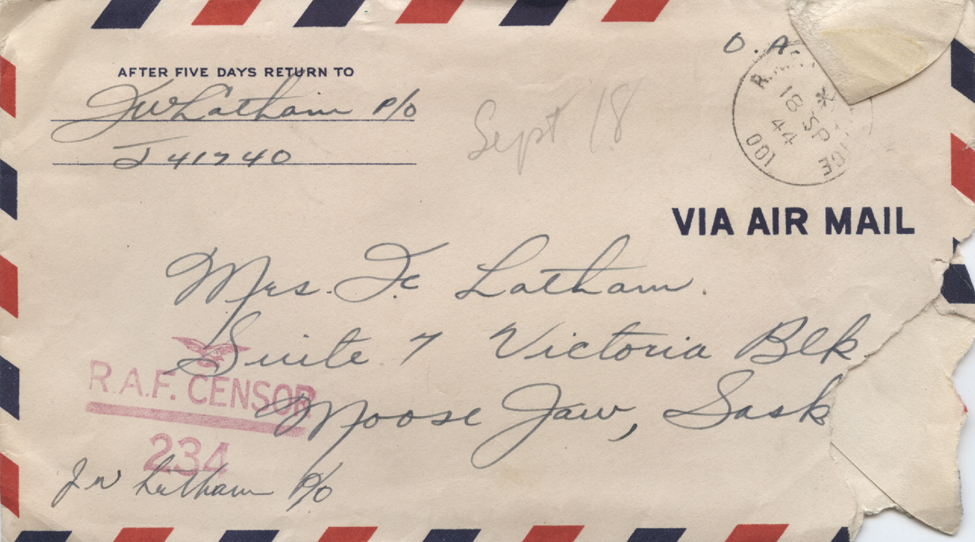 O. A
AFTER FIVE DAYS RETURN TO
JW Latham P/O
J 41740
Sept 18
18 SP
44
001
VIA AIR MAIL
Mrs. F Latham.
Suite 7 Victoria Blk
Moose Jaw, Sask
R.A.F. CENSOR
234
J W Latham P/O